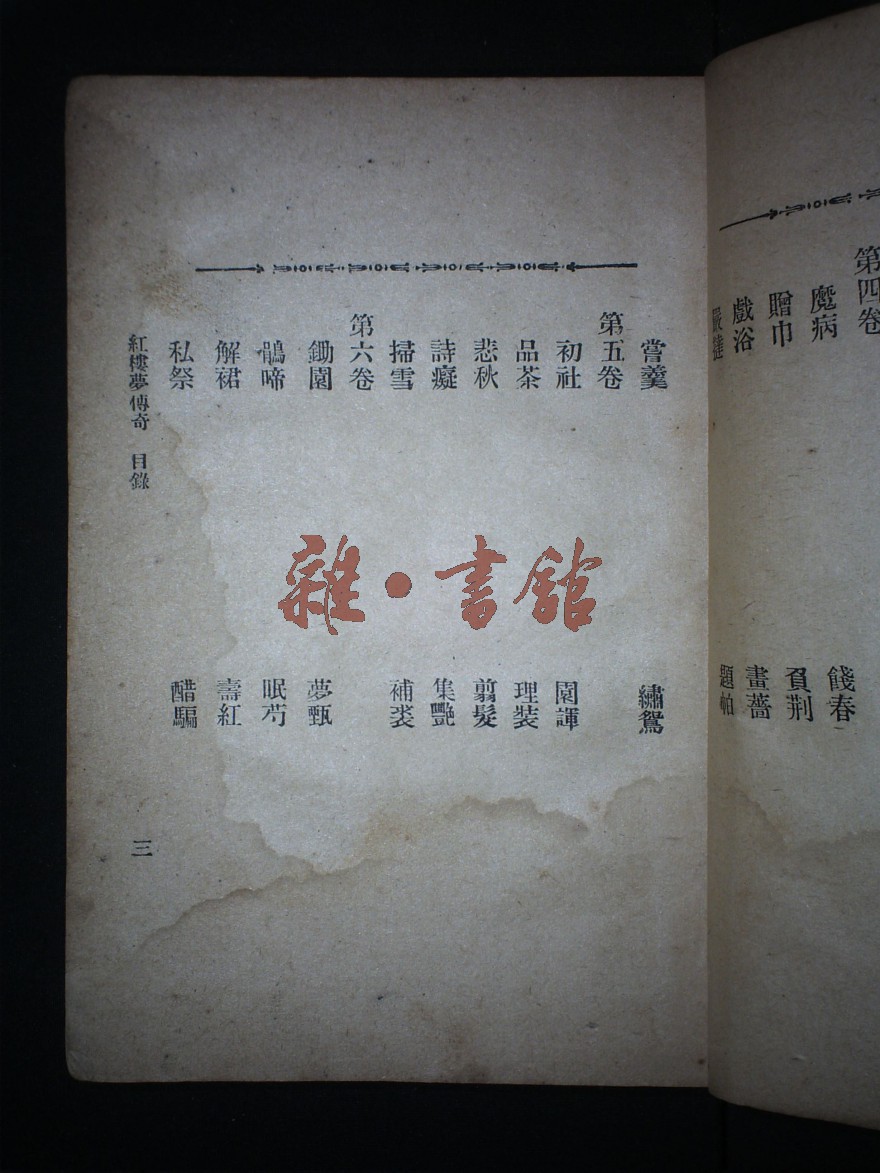 第四卷
魔病 餞春
贈巾 負荊
戲浴 畫薔
嚴撻 題帕
嘗羹 繡鴛
第五卷
初社 園諢
品茶 理裝
悲秋 翦髮
詩癡 集豔
掃雪 補裘
第六卷
鋤園 夢甄
鵑啼 眠芍
解裙 壽紅
私祭 醋騙
紅樓夢傳奇 目錄
三
雜·書館